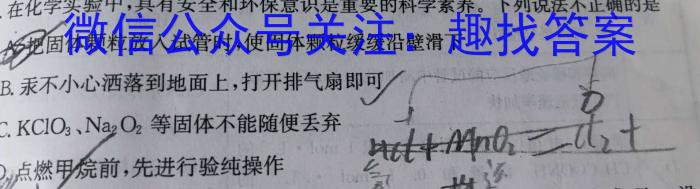 .在化学实验中,具有安全和环保意识是重要的科学素养。下列说法不正确的是
微信公众号关注：趣找答案
A.把固体颗粒放入试管时,使固体颗粒缓缓沿壁滑
B.汞不小心洒落到地面上,打开排气扇即可
C.KClO₃、Na₂O₂ 等固体不能随便丢弃
HCl + MnO₂ = Cl₂ +
D.点燃甲烷前,先进行验纯操作